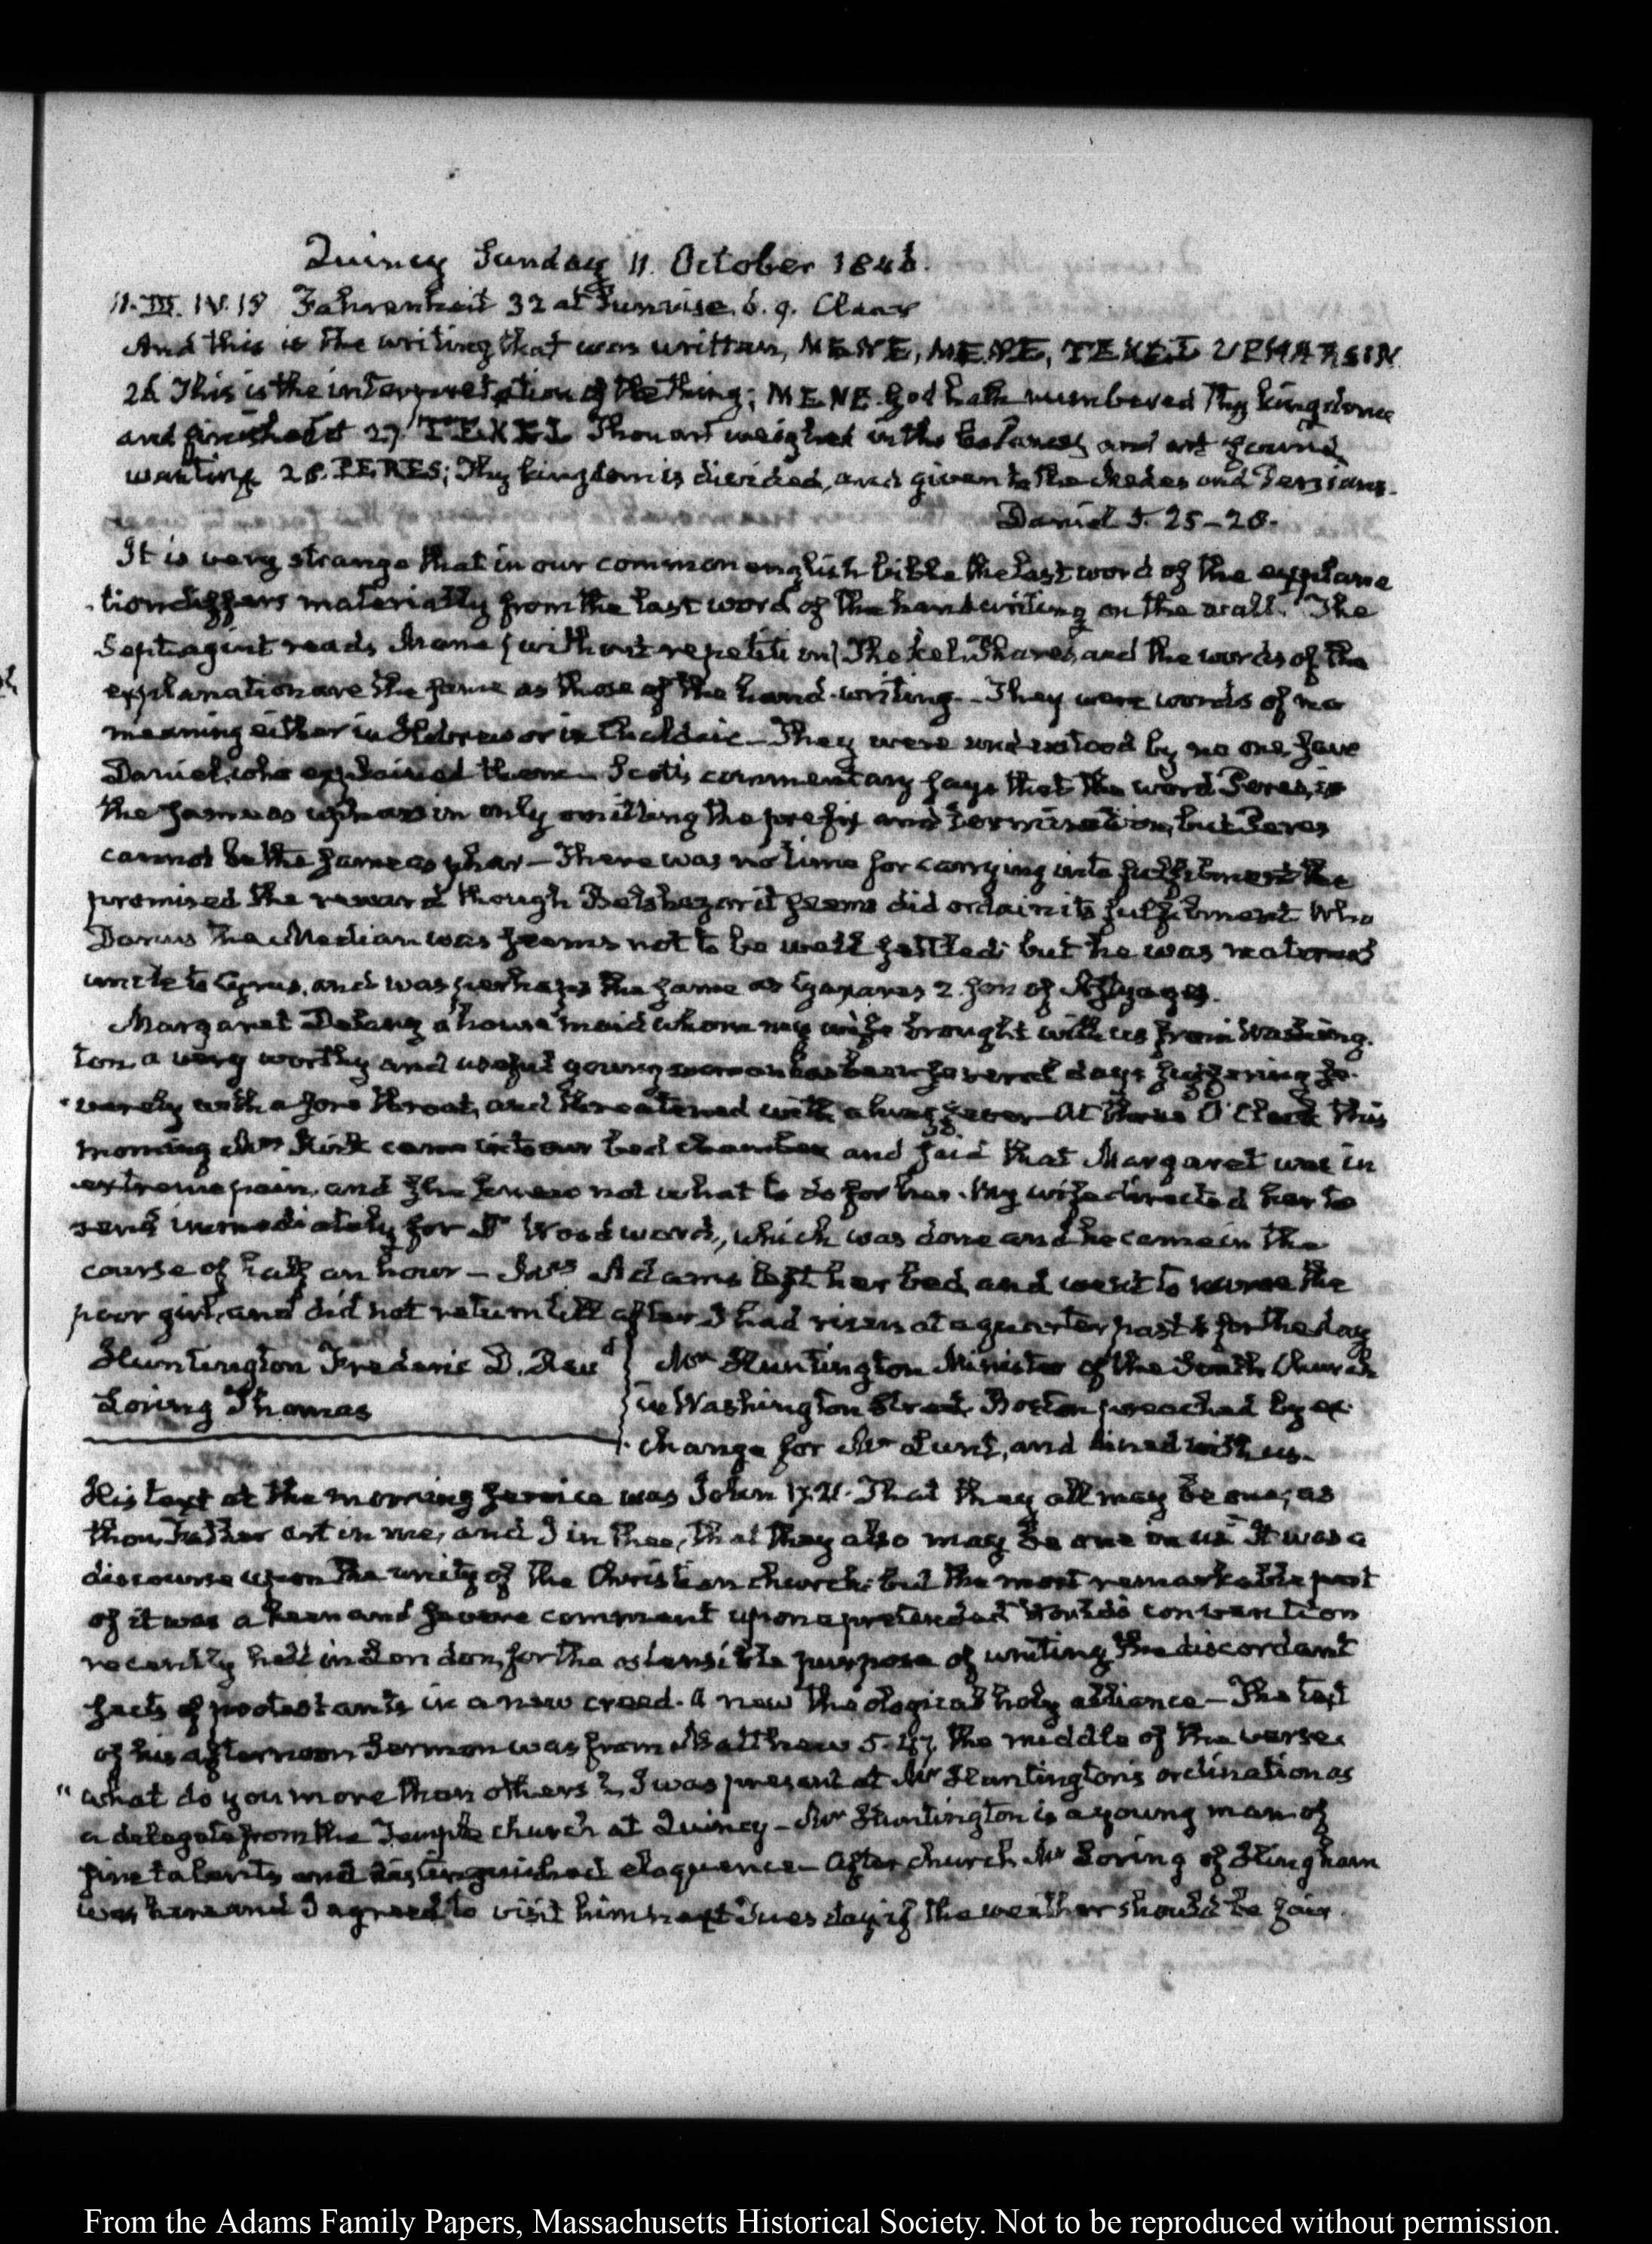 Quincy Sunday 11. October 1846.
11. III. IV. 15 Fahrenheit 32 at Sunrise. 6. 9. Clear
And this is the writing that was written, MENE, MENE, TEKEL UPHARSIN.
26. This is the interpretation of the thing; MENE. God hath numbered thy kingdom
and finished it 27. TEKEL Thou art weighed in the balances and art found
wanting 28. PERES; Thy kingdom is divided, and given to the Medes and Persians.
Daniel 5. 25–28.
It is very strange that in our common english bible the last word of the explana
tion differs materially from the last word of the hand writing on the wall. The
Septuagint reads Mane (without repetition) Thekel Phares, and the words of the
explanation are the same as those of the hand-writing – They were words of no
meaning either in Hebrew or in Chaldaic – They were understood by no one, save
Daniel, who explained them – Scott's commentary says that the word Peres, is
the same as upharsin only omitting the prefix and termination, but Peres
cannot be the same as phar – There was no time for carrying into fulfilment the
promised the reward though Belshazar it seems did ordain its fulfilment. Who
Darius the Median was seems not to be well settled: but he was maternal
uncle to Cyrus, and was perhaps the same as Cyaxares 2. son of Astyages.
Margaret Delany a house maid whom my wife brought with us from Washing-
ton a very worthy and useful young woman has been several days suffering se-
verely with a sore throat, and threatened with a lung fever – At three O'Clock this
morning Mrs Kirk came into our bed chamber and said that Margaret was in
extreme pain, and she knew not what to do for her. My wife directed her to
send immediately for Dr Woodward, which was done and he came in the
course of half an hour – Mrs Adams left her bed, and went to nurse the
poor girl, and did not return till after I had risen at a quarter past 4 for the day
Huntington Frederic D. Revd } Mr Huntington Minister of the South Church
Loring Thomas } in Washington Street Boston preached by ex-
change for Mr Lunt, and dined with us.
His text at the morning service was John 17. 21. That they all may be one, as
thou Father art in me, and I in thee, that they also may be one in us. It was a
discourse upon the unity of the Christian church: but the most remarkable part
of it was a keen and severe comment upon a pretended World's convention
recently held in London, for the ostensible purpose of uniting the discordant
sects of protestants in a new creed. A new theological holy alliance – The text
of his afternoon Sermon was from Matthew 5. 47. the middle of the verse.
"what do you more than others? I was present at Mr Huntington's ordination as
a delegate from the Temple church at Quincy – Mr Huntington is a young man of
fine talents and distinguished eloquence – After church Mr Loring of Hingham
was here and I agreed to visit him next Tuesday if the weather should be fair.
From the Adams Family Papers, Massachusetts Historical Society. Not to be reproduced without permission.